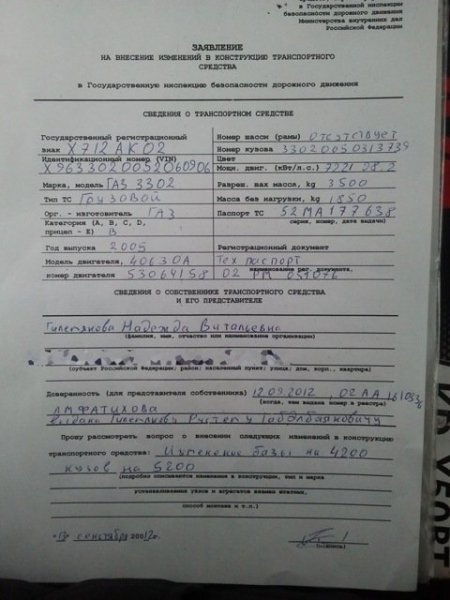 в Государственной инспекции
безопасности дорожного движения
Министерства внутренних дел
Российской Федерации
ЗАЯВЛЕНИЕ
НА ВНЕСЕНИЕ ИЗМЕНЕНИЙ В КОНСТРУКЦИЮ ТРАНСПОРТНОГО
СРЕДСТВА
в Государственную инспекцию безопасности дорожного движения
СВЕДЕНИЯ О ТРАНСПОРТНОМ СРЕДСТВЕ
Государственный регистрационный
знак Х712АК02
Идентификационный номер (VIN)
Х9633020052060906
Марка, модель ГАЗ 3302
Тип ТС Грузовой
Орг. - изготовитель ГАЗ
Категория (A, B, C, D,
прицеп - E) В
Год выпуска 2005
Модель двигателя, 40630А
номер двигателя 53064158
Номер шасси (рамы) отсутствует
Номер кузова 33020050313739
Цвет
Мощн. двиг. (кВт/л.с.) 72.21 98.2
Разреш. max масса, kg 3500
Масса без нагрузки, kg 1850
Паспорт ТС 52МА177638
серия, номер, дата выдачи)
Регистрационный документ
Тех паспорт
наименование рег. документа,
02 РМ 051076
СВЕДЕНИЯ О СОБСТВЕННИКЕ ТРАНСПОРТНОГО СРЕДСТВА
И ЕГО ПРЕДСТАВИТЕЛЕ
Надежда Витальевна
(фамилия, имя, отчество или наименование организации)
(субъект Российской Федерации, район, населенный пункт, улица, дом, корп., квартира)
Доверенность (для представителя собственника) 12.09.2012 02 АА
(когда, кем выдана номер в реестре)
Прошу рассмотреть вопрос о внесении следующих изменений в конструкцию
транспортного средства: базы на 4200
кузов на 5200
(подробно описываются изменения в конструкции, тип и марка
устанавливаемых узлов и агрегатов взамен изъятых,
способ монтажа и т.п.)
"13" сентября 2012г.
(подпись)